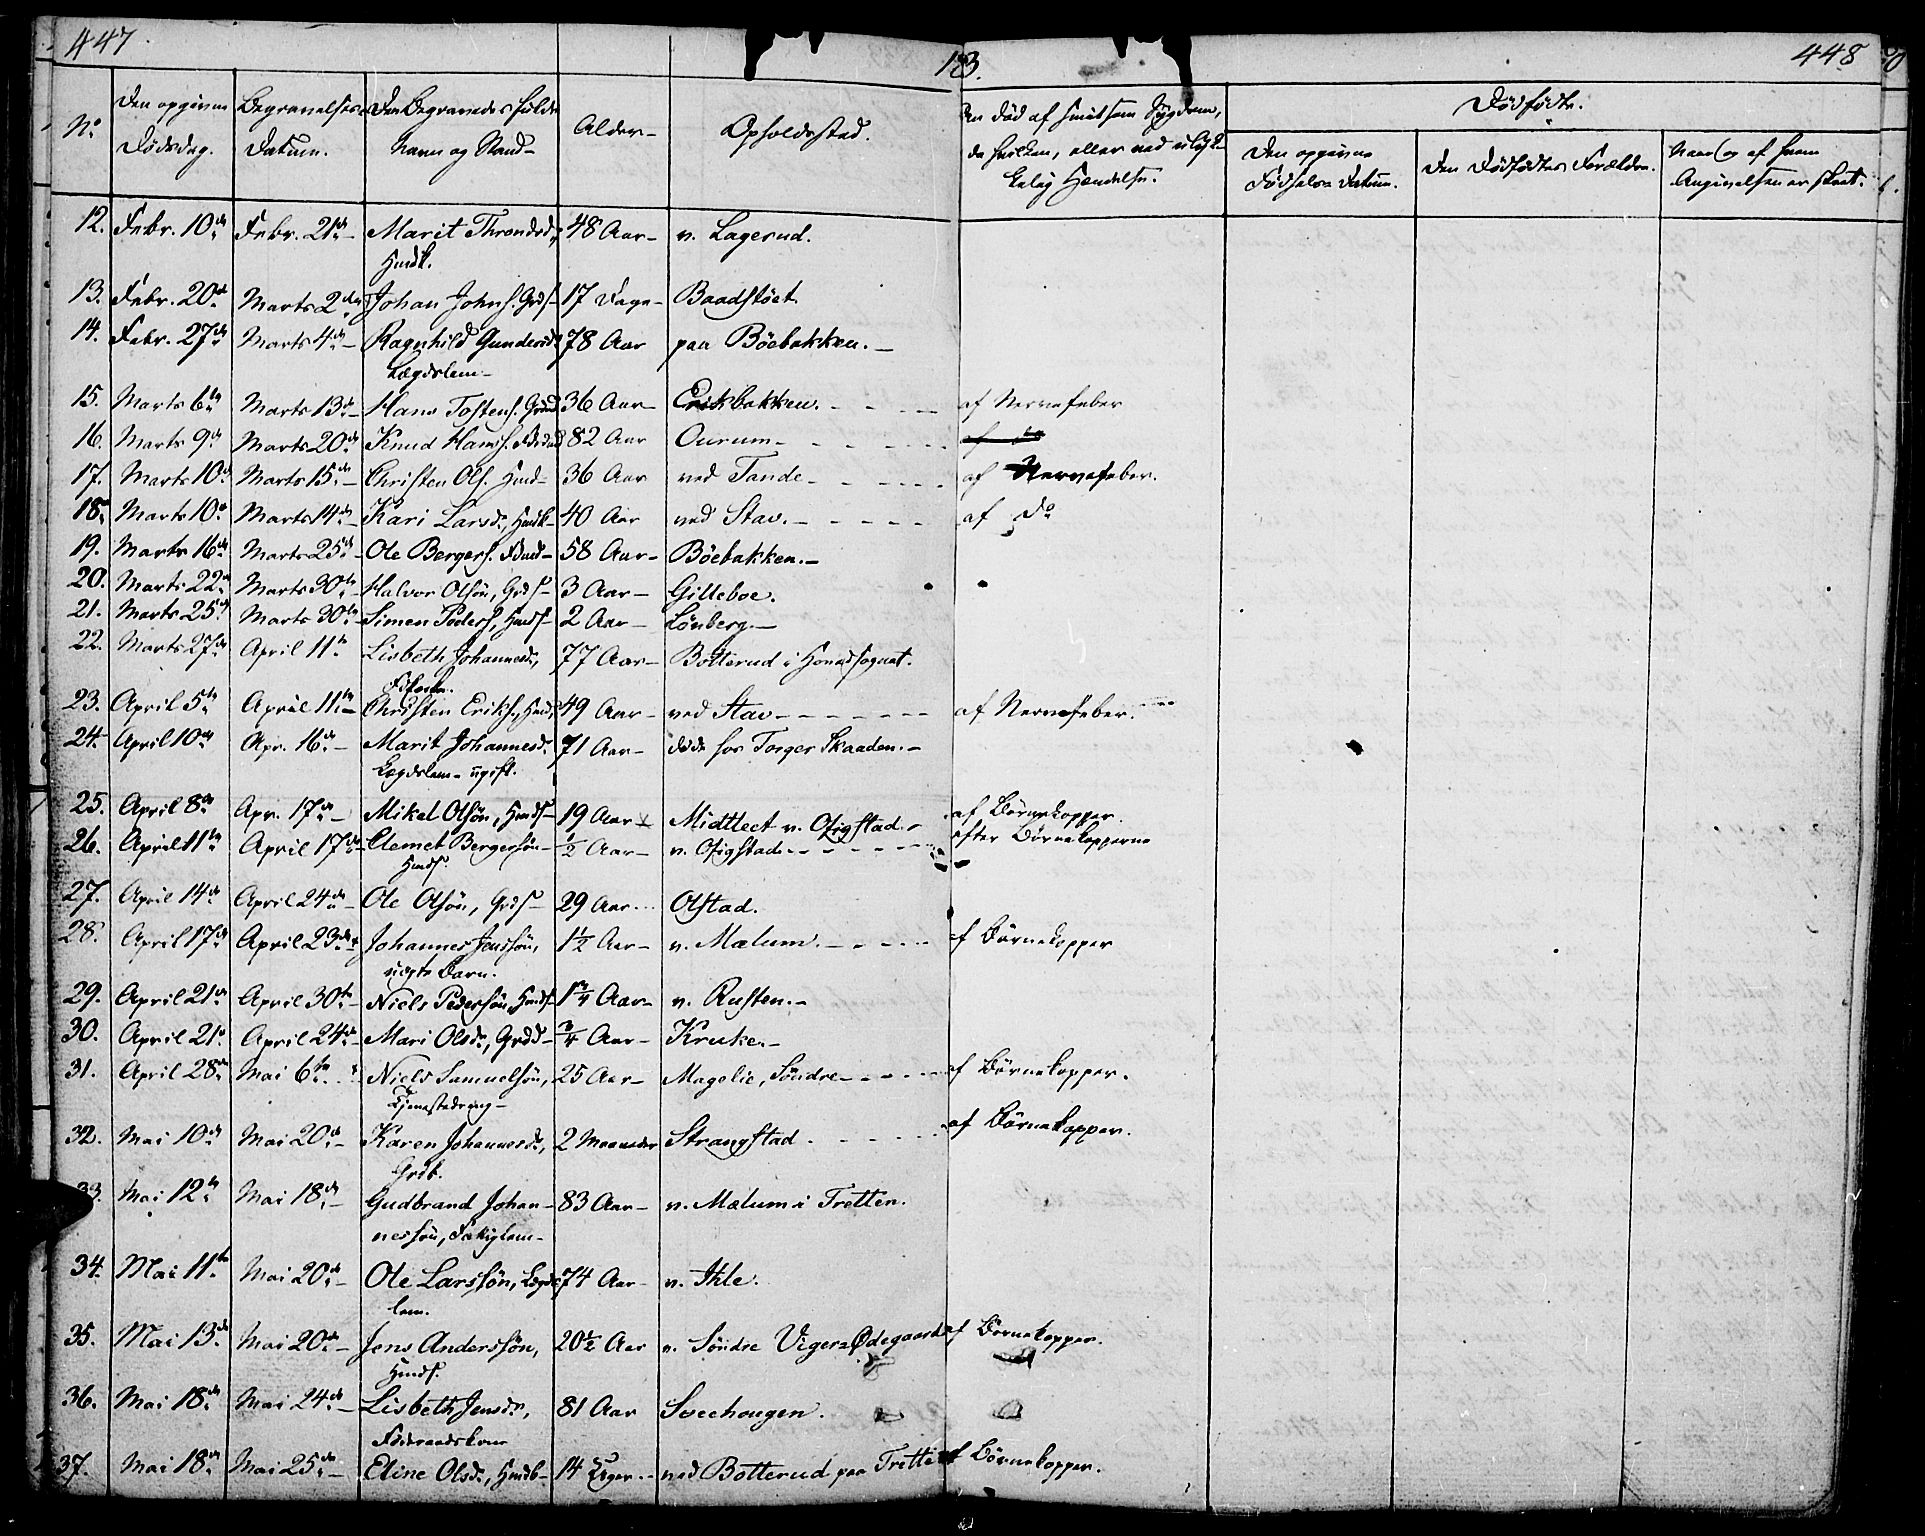 447. 183. 448
No Den opgivne Dødsdag. Begravelses Datum. Den Begravedes fulde Navn og Stand Alder Opholdsstad. Om død af smitsom Sygdom, da hvilken, eller ved ulykkelig Hændelse. Dødfødte.
Den opgivne Fødsels Datum. Den Dødfødtes Forældre. Naar og af hvem Angivelsen er skeet.
12. Febr. 10de Febr. 21de Marit Throndsd., 48 Aar v. Lagerud.
Huusk.
13. Febr. 20de Marts 2den Johan Johns. Grds 17 Dage Baadstøet.
14. Febr. 27de Marts 4de Ragnhild Gundersd. 78 Aar paa Böebakken.
Lægdslem
15. Marts 6te Marts 13de Hans Tostens. 36 Aar Erikbakken. af Nervefeber
16. Marts 9de Marts 20de Knud Hans. 82 Aar Ourum af do
17. Marts 10de Marts 15de Christen Ols. Huusm 36 Aar ved Tande af Nervefeber.
18. Marts 10de Marts 14de Kari Larsdr., Huusk 40 Aar ved Stav. af Do
19. Marts 16de Marts 25de Ole Bergers. 58 Aar Böebakken.
20. Marts 22de Marts 30te Halvor Olsön, Grds 3 Aar Gilleboe.
21. Marts 25de Marts 30te Simen Peders., Huuss 2 Aar Lönberg.
22. Marts 27de April 11te Lisbeth Johannesdr., 77 Aar Botterud i Hovedsognet.
23. April 5te April 11te Christen Eriks., 49 Aar ved Stav af Nervefeber.
24. April 10de Apr. 16de Marit Johannesdr. 71 Aar døde hos Torger Skaaden.
Lægdslem ugift.
25. April 8de Apr. 17de Mikel Olsön, Huuss 19 Aar Midtleet v. Ofigstad. af Børnekopper.
26. April 11te April 17de Clemet Bergersön 1/2 Aar v. Ofigstad. efter Børnekopperne
Huuss.
27. April 14de April 24de Ole Olsön, Grds 29 Aar Olstad.
28. April 17de April 23de Johannes Jenssön, 1 1/2 Aar v. Mælum. af Børnekopper
uægte Barn.
29. April 21de April 30te Niels Pedersön, Huuss 1 3/4 Aar v. Rusten.
30. April 21de April 24de Mari Olsdr., Grdd 3/4 Aar Kruke.
31. April 28de Mai 6te Niels Samuelsön, 25 Aar Magelie, Söndre af Børnekopper.
Tjenestedreng
32. Mai 10de Mai 20de Karen Johannesdr., 2 Maaneder Strangstad af Børnekopper.
33. Mai 12te Mai 18de Gudbrand Johan- 83 Aar v. Mælum i Tretten.
nessön, Fattiglem
34. Mai 11te Mai 20de Ole Larssön, Lægds 74 Aar v. Ihle.
lem.
35. Mai 13de Mai 20de Jens Anderssön, 20 1/2 Aar v. Söndre Vigers Ødegaard af Børnekopper.
Huuss.
36. Mai 18de Mai 24de Lisbeth Jensdr., 81 Aar Sveehougen.
Föderaadskone
37. Mai 18de Mai 25de Eline Olsdr., 14 Uger ved Botterud paa Tretten af Børnekopper.